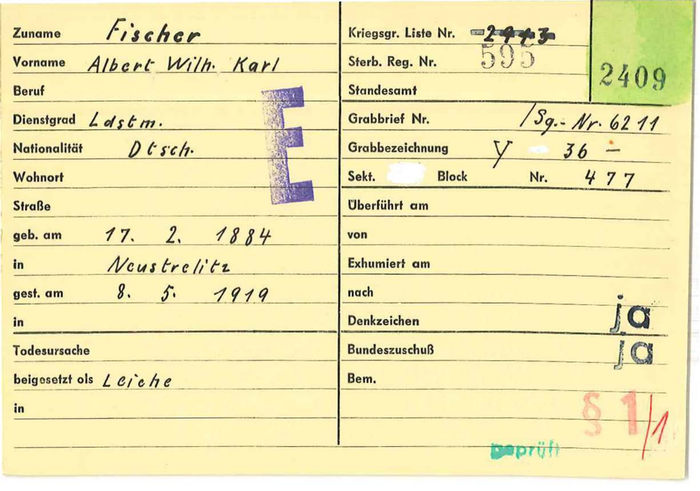 Zuname Fischer
Vorname Albert Wilh. Karl
Beruf
Dienstgrad Ldstm.
Nationalität Dtsch.
Wohnort
Straße
geb. am 17. 2. 1884
in Neustrelitz
gest. am 8. 5. 1919
in
Todesursache
beigesetzt als Leiche
in
E
Kriegsgr. Liste Nr. 2943
Sterb. Reg. Nr. 595
2409
Standesamt
Grabbrief Nr. /Sg.-Nr. 6211
Grabbezeichnung Y 36 -
Sekt. Block Nr. 477
Überführt am
von
Exhumiert am
nach
Denkzeichen ja
Bundeszuschuß ja
Bem.
§ 1/1
geprüft